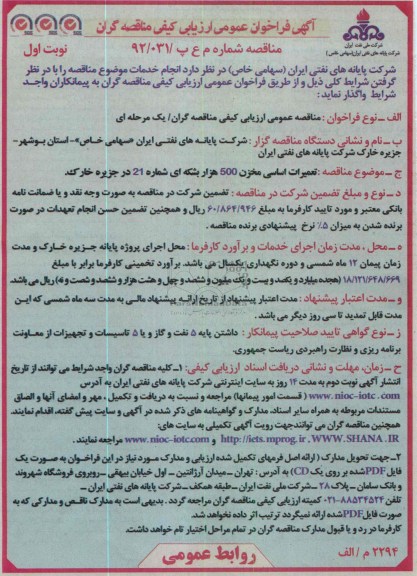 آگهی فراخوان عمومی ارزیابی کیفی مناقصه گران
مناقصه شماره م ع پ /۹۲/۰۳۱
نوبت اول
شرکت ملی نفت ایران
شرکت پایانه های نفتی ایران (سهامی خاص)
شرکت پایانه های نفتی ایران (سهامی خاص) در نظر دارد انجام خدمات موضوع مناقصه را با در نظر
گرفتن شرایط کلی ذیل و از طریق فراخوان عمومی ارزیابی کیفی مناقصه گران به پیمانکاران واجد
شرایط واگذار نماید :
الف ـ نوع فراخوان : مناقصه عمومی ارزیابی کیفی مناقصه گران/ یک مرحله ای
ب ـ نام و نشانی دستگاه مناقصه گزار : شرکت پایانه های نفتی ایران «سهامی خاص»- استان بوشهر-
جزیره خارک شرکت پایانه های نفتی ایران
ج ـ موضوع مناقصه : تعمیرات اساسی مخزن 500 هزار بشکه ای شماره 21 در جزیره خارک.
د ـ نوع و مبلغ تضمین شرکت در مناقصه : تضمین شرکت در مناقصه به صورت وجه نقد و یا ضمانت نامه
بانکی معتبر و مورد تایید کارفرما به مبلغ ۶۰/۸۶۴/۹۴۶ ریال و همچنین تضمین حسن انجام تعهدات در صورت
برنده شدن به میزان ۵٪ نرخ پیشنهادی برنده مناقصه .
ه ـ محل ، مدت زمان اجرای خدمات و برآورد کارفرما : محل اجرای پروژه پایانه جزیره خارک و مدت
زمان پیمان ۱۲ ماه شمسی و دوره نگهداری یکسال می باشد. برآورد تخمینی کارفرما برابر با مبلغ
۱۸/۱۲۱/۶۴۸/۶۶۹ (هجده میلیارد و یکصد و بیست و یک میلیون و ششصد و چهل و هشت هزار و ششصد و شصت و نه) ریال می باشد.
و ـ مدت اعتبار پیشنهاد : مدت اعتبار پیشنهاد از تاریخ ارائه پیشنهاد مالی به مدت سه ماه شمسی که این
مدت قابل تمدید تا سی روز دیگر می باشد .
ز ـ نوع گواهی تایید صلاحیت پیمانکار : داشتن پایه ۵ نفت و گاز و یا ۵ تاسیسات و تجهیزات از معاونت
برنامه ریزی و نظارت راهبردی ریاست جمهوری.
ح ـ زمان، مهلت و نشانی دریافت اسناد ارزیابی کیفی: ۱ـ کلیه مناقصه گران واجد شرایط می توانند از تاریخ
انتشار آگهی نوبت دوم به مدت ۱۴ روز به سایت اینترنتی شرکت پایانه های نفتی ایران به آدرس
www.nioc-iotc.com ( قسمت امور پیمانها) مراجعه و نسبت به دریافت و تکمیل ، مهر و امضای آنها و الصاق
مستندات مربوطه به همراه سایر اسناد، مدارک و گواهینامه های ذکر شده در آگهی و سایت پیش گفته، اقدام نمایند.
همچنین مناقصه گران می توانند جهت رویت آگهی تکمیلی به سایت های:
WWW.SHANA.IR ، http://iets.mporg.ir و www.nioc-iotc.com مراجعه نمایند .
۲ـ جهت تحویل مدارک ( ارائه اصل فرمهای تکمیل شده ارزیابی و مدارک مورد نیاز در این فراخوان به صورت یک
فایل PDF شده بر روی یک CD) به آدرس : تهران ـ میدان آرژانتین ـ اول خیابان بیهقی ـ روبروی فروشگاه شهروند
و بانک سامان ـ پلاک ۲۸ ـ شرکت ملی نفت ایران ـ طبقه همکف ـ شرکت پایانه های نفتی ایران ـ
تلفن ۸۸۵۳۴۵۲۴-۰۲۱ کمیته ارزیابی کیفی مناقصه گران مراجعه گردد . بدیهی است به مدارک ناقص و مدارکی که به
صورت فایل PDF شده ارائه نمیگردد ترتیب اثر داده نخواهد شد.
کارفرما در رد و یا قبول مدارک مناقصه گران در تمام مراحل اختیار تام خواهد داشت.
روابط عمومی
۲۲۹۴ م / الف